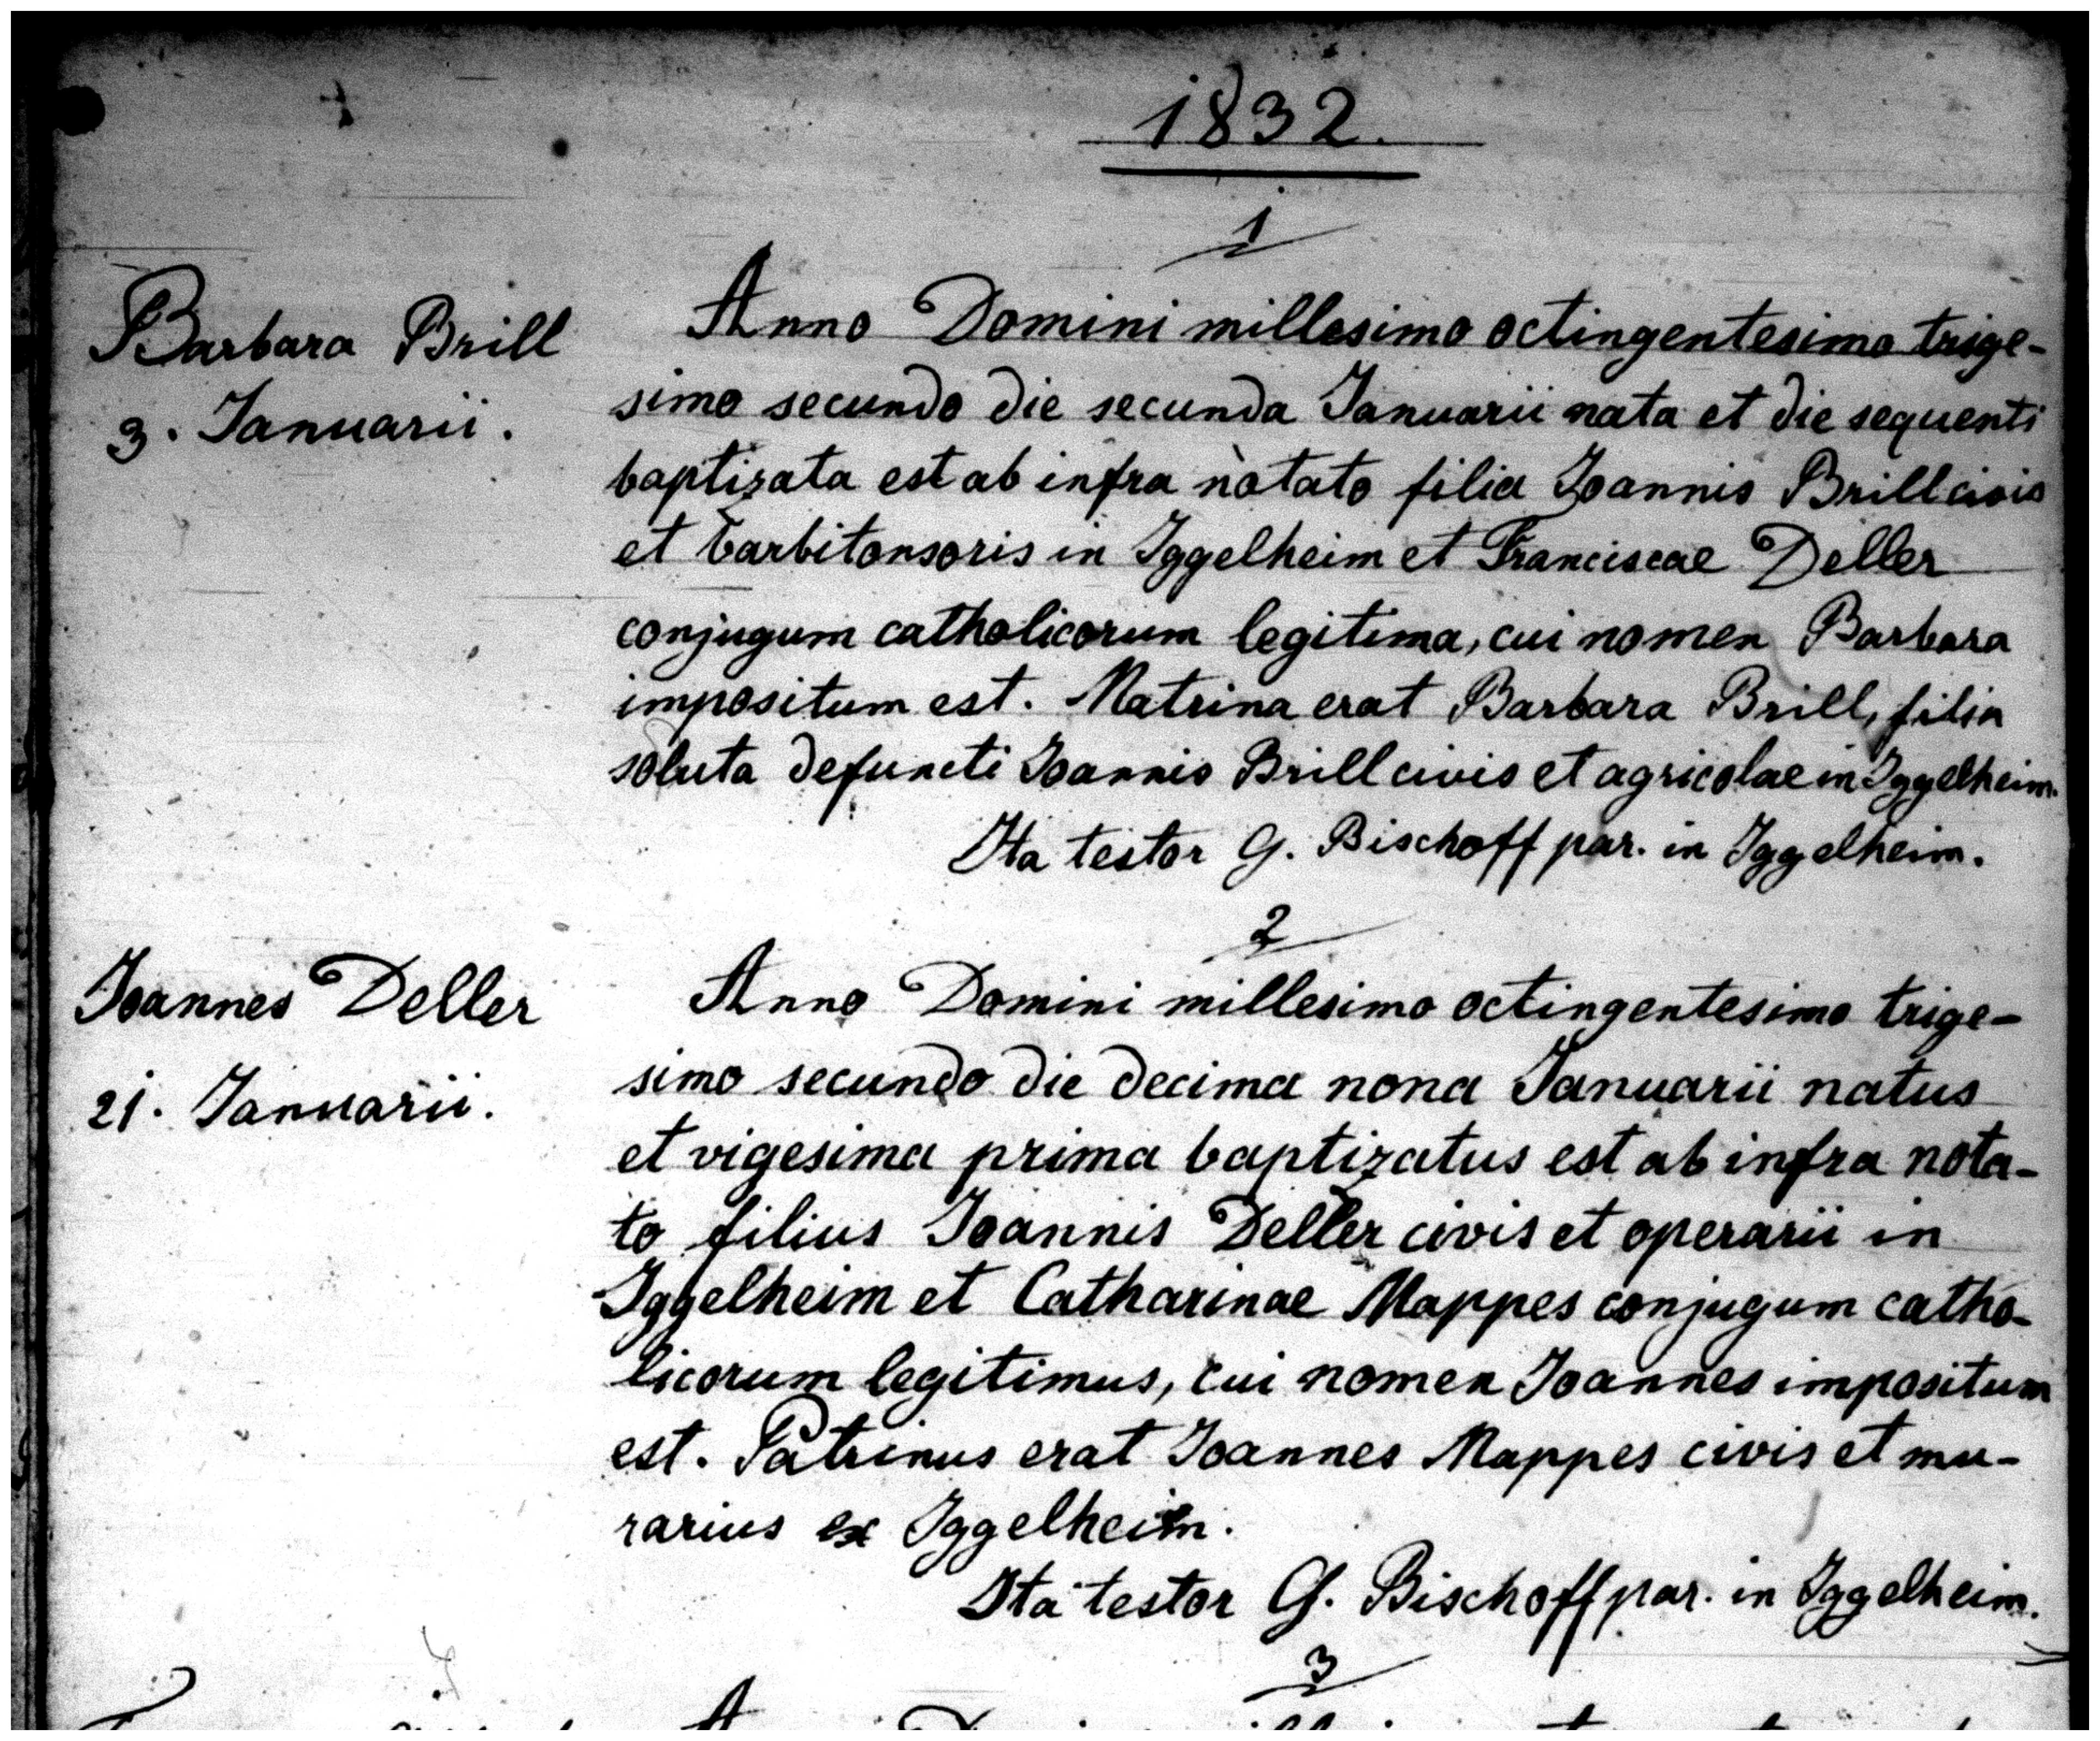 1832.
1
Barbara Brill
3. Januarii.
Anno Domini millesimo octingentesimo trige-
simo secundo die secunda Januarii nata et die sequenti
baptizata est ab infra notato filia Joannis Brill civis
et barbitonsoris in Iggelheim et Franciscae Deller
conjugum catholicorum legitima, cui nomen Barbara
impositum est. Matrina erat Barbara Brill, filia
soluta defuncti Joannis Brill civis et agricolae in Iggelheim.
Ita testor G. Bischoff par. in Iggelheim.
2
Joannes Deller
21. Januarii.
Anno Domini millesimo octingentesimo trige-
simo secundo die decima nona Januarii natus
et vigesima prima baptizatus est ab infra nota-
to filius Joannis Deller civis et operarii in
Iggelheim et Catharinae Mappes conjugum catho-
licorum legitimus, cui nomen Joannes impositum
est. Patrinus erat Joannes Mappes civis et mu-
rarius ex Iggelheim.
Ita testor G. Bischoff par. in Iggelheim.
3